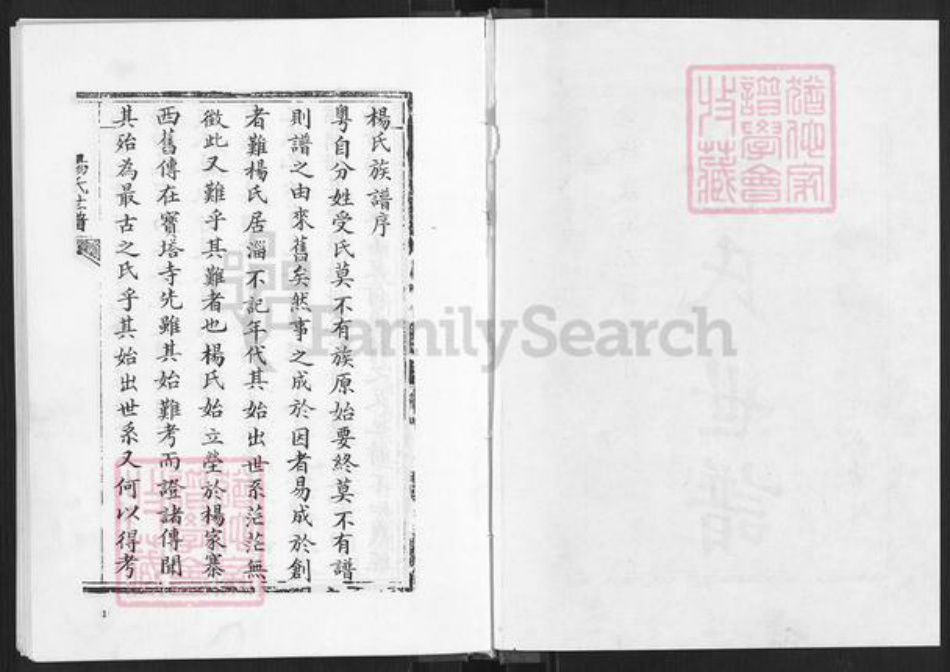 楊氏族譜序
粵自分姓受氏莫不有族原始要終莫不有譜
則譜之由來舊矣然事之成於因者易成於創
者難楊氏居淄不記年代其始出世系茫茫無
徵此又難乎其難者也楊氏始立塋於楊家寨
西舊傳在寶塔寺先雖其始難考而證諸傳聞
其殆為最古之氏乎其始出世系又何以得考
楊氏世譜
1
譜學會
收藏
氏世譜
FamilySearch